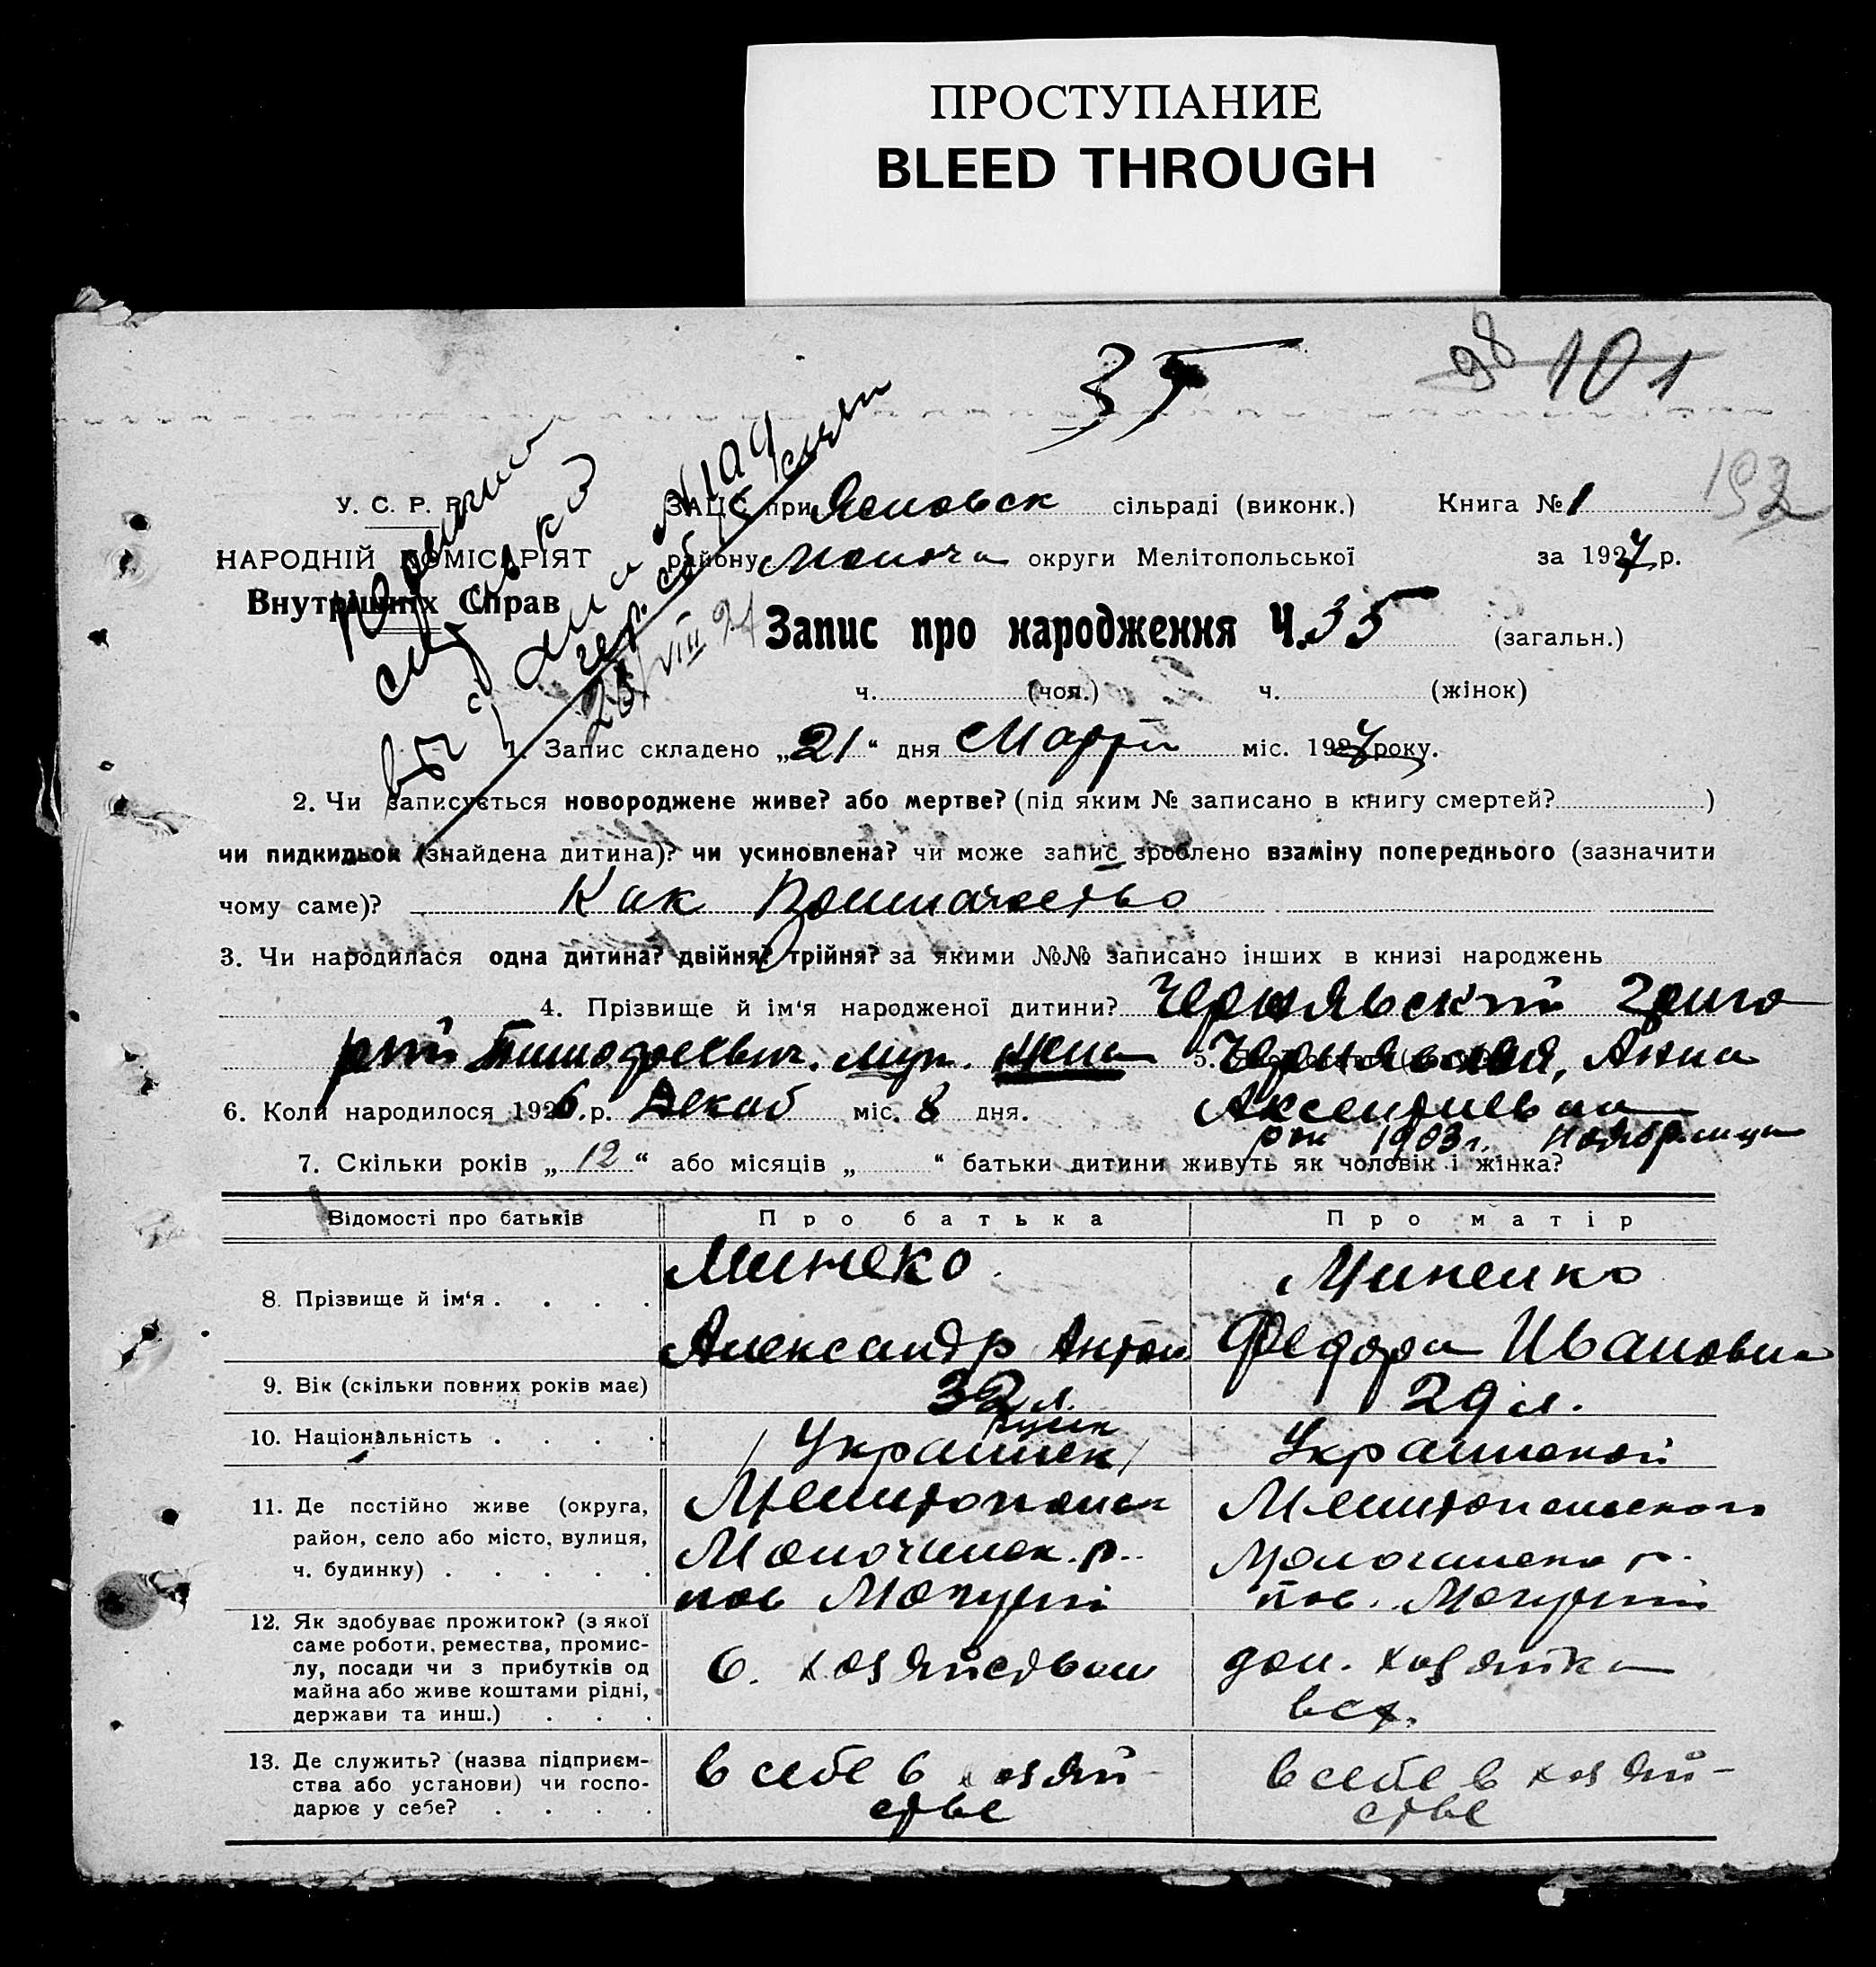 ПРОСТУПАНИЕ
BLEED THROUGH
35
98 101
192
У. С. Р. Р.
НАРОДНІЙ КОМІСАРІЯТ
Внутрішніх Справ
ЗАЦС при сільраді (виконк.) Книга № 1
району Молоча округи Мелітопольської за 1927 р.
Запис про народження Ч. 35 (загальн.)
ч. (чол.) ч. (жінок)
1. Запис складено „21“ дня Марта міс. 1927 року.
2. Чи записується новороджене живе? або мертве? (під яким № записано в книгу смертей? )
чи пидкидьок (знайдена дитина)? чи усиновлена? чи може запис зроблено взаміну попереднього (зазначити
чому саме)? Как
3. Чи народилася одна дитина? двійня? трійня? за якими №№ записано інших в книзі народжень
4. Прізвище й ім‘я народженої дитини? Чернявский Григо
рий Тимофеевич. муж. 5. Чернявская, Анна
6. Коли народилося 1926 р. Декаб міс. 8 дня. Аксентиевна
1903 г.
7. Скільки років „12“ або місяців „ “ батьки дитини живуть як чоловік і жінка?
Відомості про батьків Про батька Про матір
8. Прізвище й ім‘я . . . . Минеко Миненко
Александр Антон Федора Ивановна
9. Вік (скільки повних років має) 32 л. 29 л.
10. Національність . . . . Украинск Украинской
11. Де постійно живе (округа, Мелитопольск Мелитопольского
район, село або місто, вулиця, Молочинск. р. Молочинско р.
ч. будинку) . . . . .
12. Як здобуває прожиток? (з якої
саме роботи, ремества, промис-
лу, посади чи з прибутків од с. хозяйством дом. хозяйка
майна або живе коштами рідні,
держави та инш.) . . .
13. Де служить? (назва підприєм- в себе в хозяй- в себе в хозяй-
ства або установи) чи госпо- стве стве
дарює у себе? . . . .